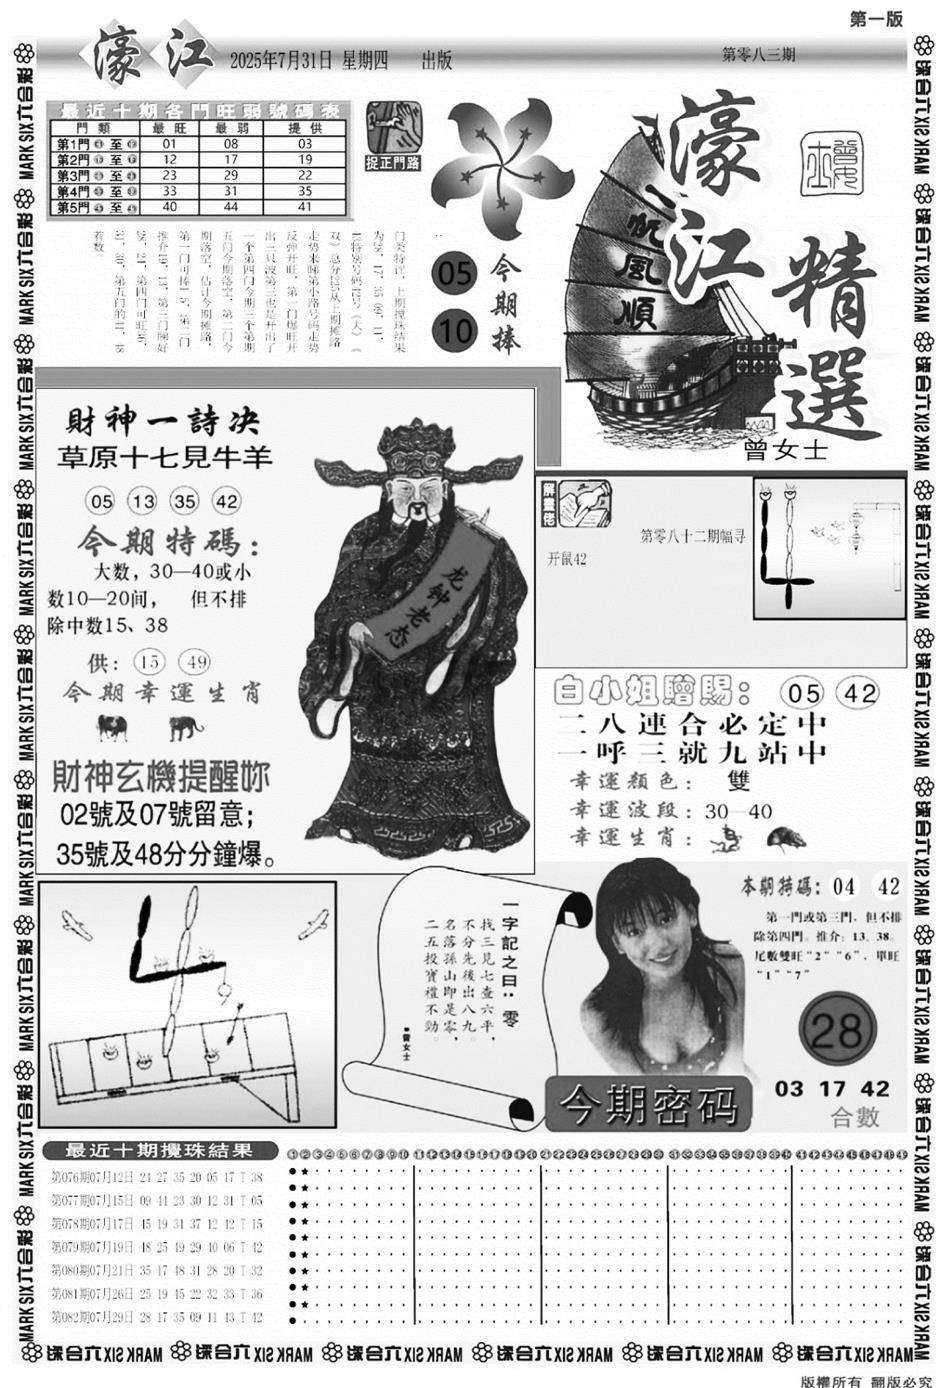 第一版
濠江 2025年7月31日 星期四 出版 第零八三期
最近十期各門旺弱號碼表
門類 最旺 最弱 提供
第1門 至 01 08 03
第2門 至 12 17 19
第3門 至 23 29 22
第4門 至 33 31 35
第5門 至 40 44 41
捉正門路
05
10
今期捧
一帆風順
濠江
精選
曾女士
门类特评，上期搅珠结果
一个第四门今期三个第期
五门今期落空，第二门今
期落空，估计今期摊路，
財神一詩决
草原十七見牛羊
05 13 35 42
今期特碼：
大数，30—40或小
数10—20间， 但不排
除中数15、38
供：15 49
今期幸運生肖
財神玄機提醒妳
02號及07號留意；
35號及48分分鐘爆。
龙钟老态
解畫佬
第零八十二期幅寻
开鼠42
白小姐贈賜：05 42
二八連合必定中
一呼三就九站中
幸運顏色： 雙
幸運波段：30—40
幸運生肖：
一字記之曰：零
找三見七查六平，
不分先後出八九。
名落孫山即是零，
二五投寶禮不勁。
●曾女士
本期特碼：04 42
第一門或第三門，但不排
除第四門。推介：13、38。
尾數雙旺“2”“6”，單旺
“1”“7”
28
03 17 42
合數
今期密码
最近十期攪珠結果
第076期07月12日 24 27 35 20 05 17 T 38
第077期07月15日 09 44 23 30 12 31 T 05
第078期07月17日 45 19 31 37 12 42 T 15
第079期07月19日 48 25 49 29 40 06 T 42
第080期07月21日 35 17 48 31 28 20 T 32
第081期07月26日 25 19 45 22 32 33 T 36
第082期07月29日 28 17 35 09 11 43 T 42
MARK SIX 六合彩
版權所有 翻版必究